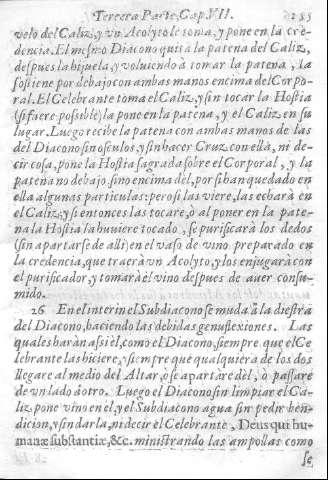 Tercera Parte, Cap. VII. 255
velo del Caliz, y vn Acolyto le toma, y pone en la cre-
dencia. El mesmo Diacono quita la patena del Caliz,
despues la hijuela, y voluiendo à tomar la patena, la
sostiene por debajo con ambas manos encima del Corpo-
ral. El Celebrante toma el Caliz, y sin tocar la Hostia
(si fuere possible) la pone en la patena, y el Caliz en su
lugar. Luego recibe la patena con ambas manos de las
del Diacono sin osculos, y sin hacer Cruz con ella, ni de-
cir cosa, pone la Hostia sagrada sobre el Corporal, y la
patena no debajo, sino encima del, por si han quedado en
ella algunas particulas: pero si las viere, las echarà en
el Caliz, y si entonces las tocare, ò al poner en la pate-
na la Hostia la huuiere tocado, se purificarà los dedos
(sin apartarse de alli) en el vaso de vino preparado en
la credencia, que traerà vn Acolyto, y los enjugarà con
el purificador, y tomarà el vino despues de auer consu-
mido.
26 En el interin el Subdiacono se muda à la diestra
del Diacono, haciendo las debidas genuflexiones. Las
quales haràn assi èl, como el Diacono, siempre que el Ce-
lebrante las hiciere, y siempre que qualquiera de los dos
llegare al medio del Altar, ò se apartare dèl, ò passare
de vn lado à otro. Luego el Diacono sin limpiar el Ca-
liz, pone vino en èl, y el Subdiacono agua sin pedir ben-
dicion, y sin darla, ni decir el Celebrante, Deus qui hu-
manæ substantiæ, &c. ministrando las ampollas como
se